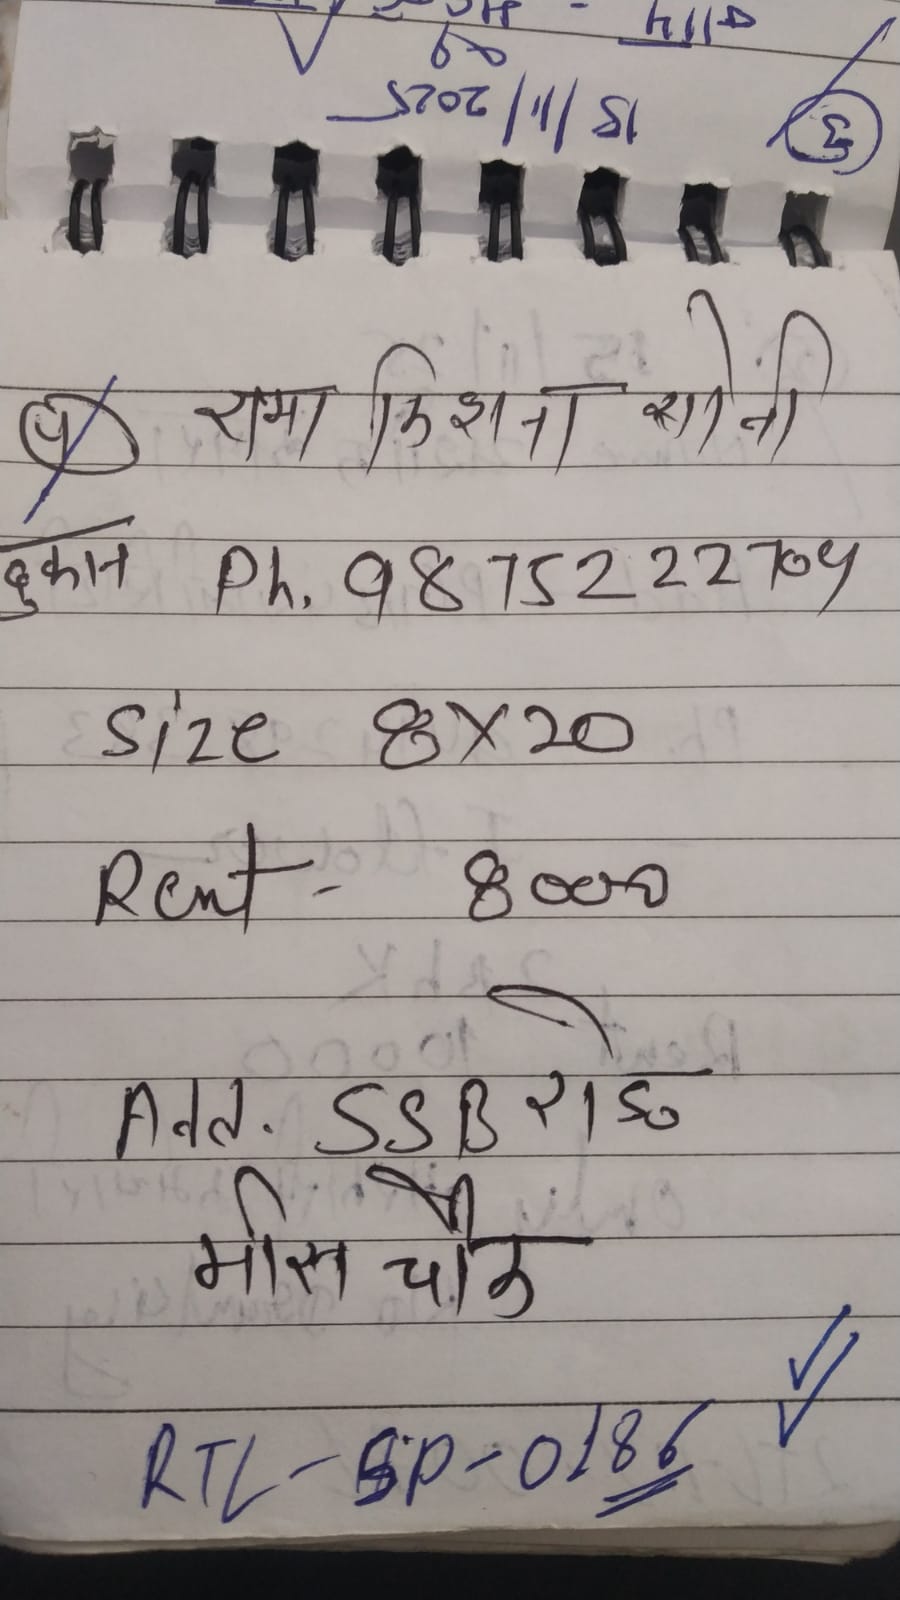 15/11/2025
3
५ रामा किशना सोनी
दुकान Ph. 9875222704
Size 8X20
Rent - 8000
Add. SSB रोड
मीरा चौक
RTL-SP-0186